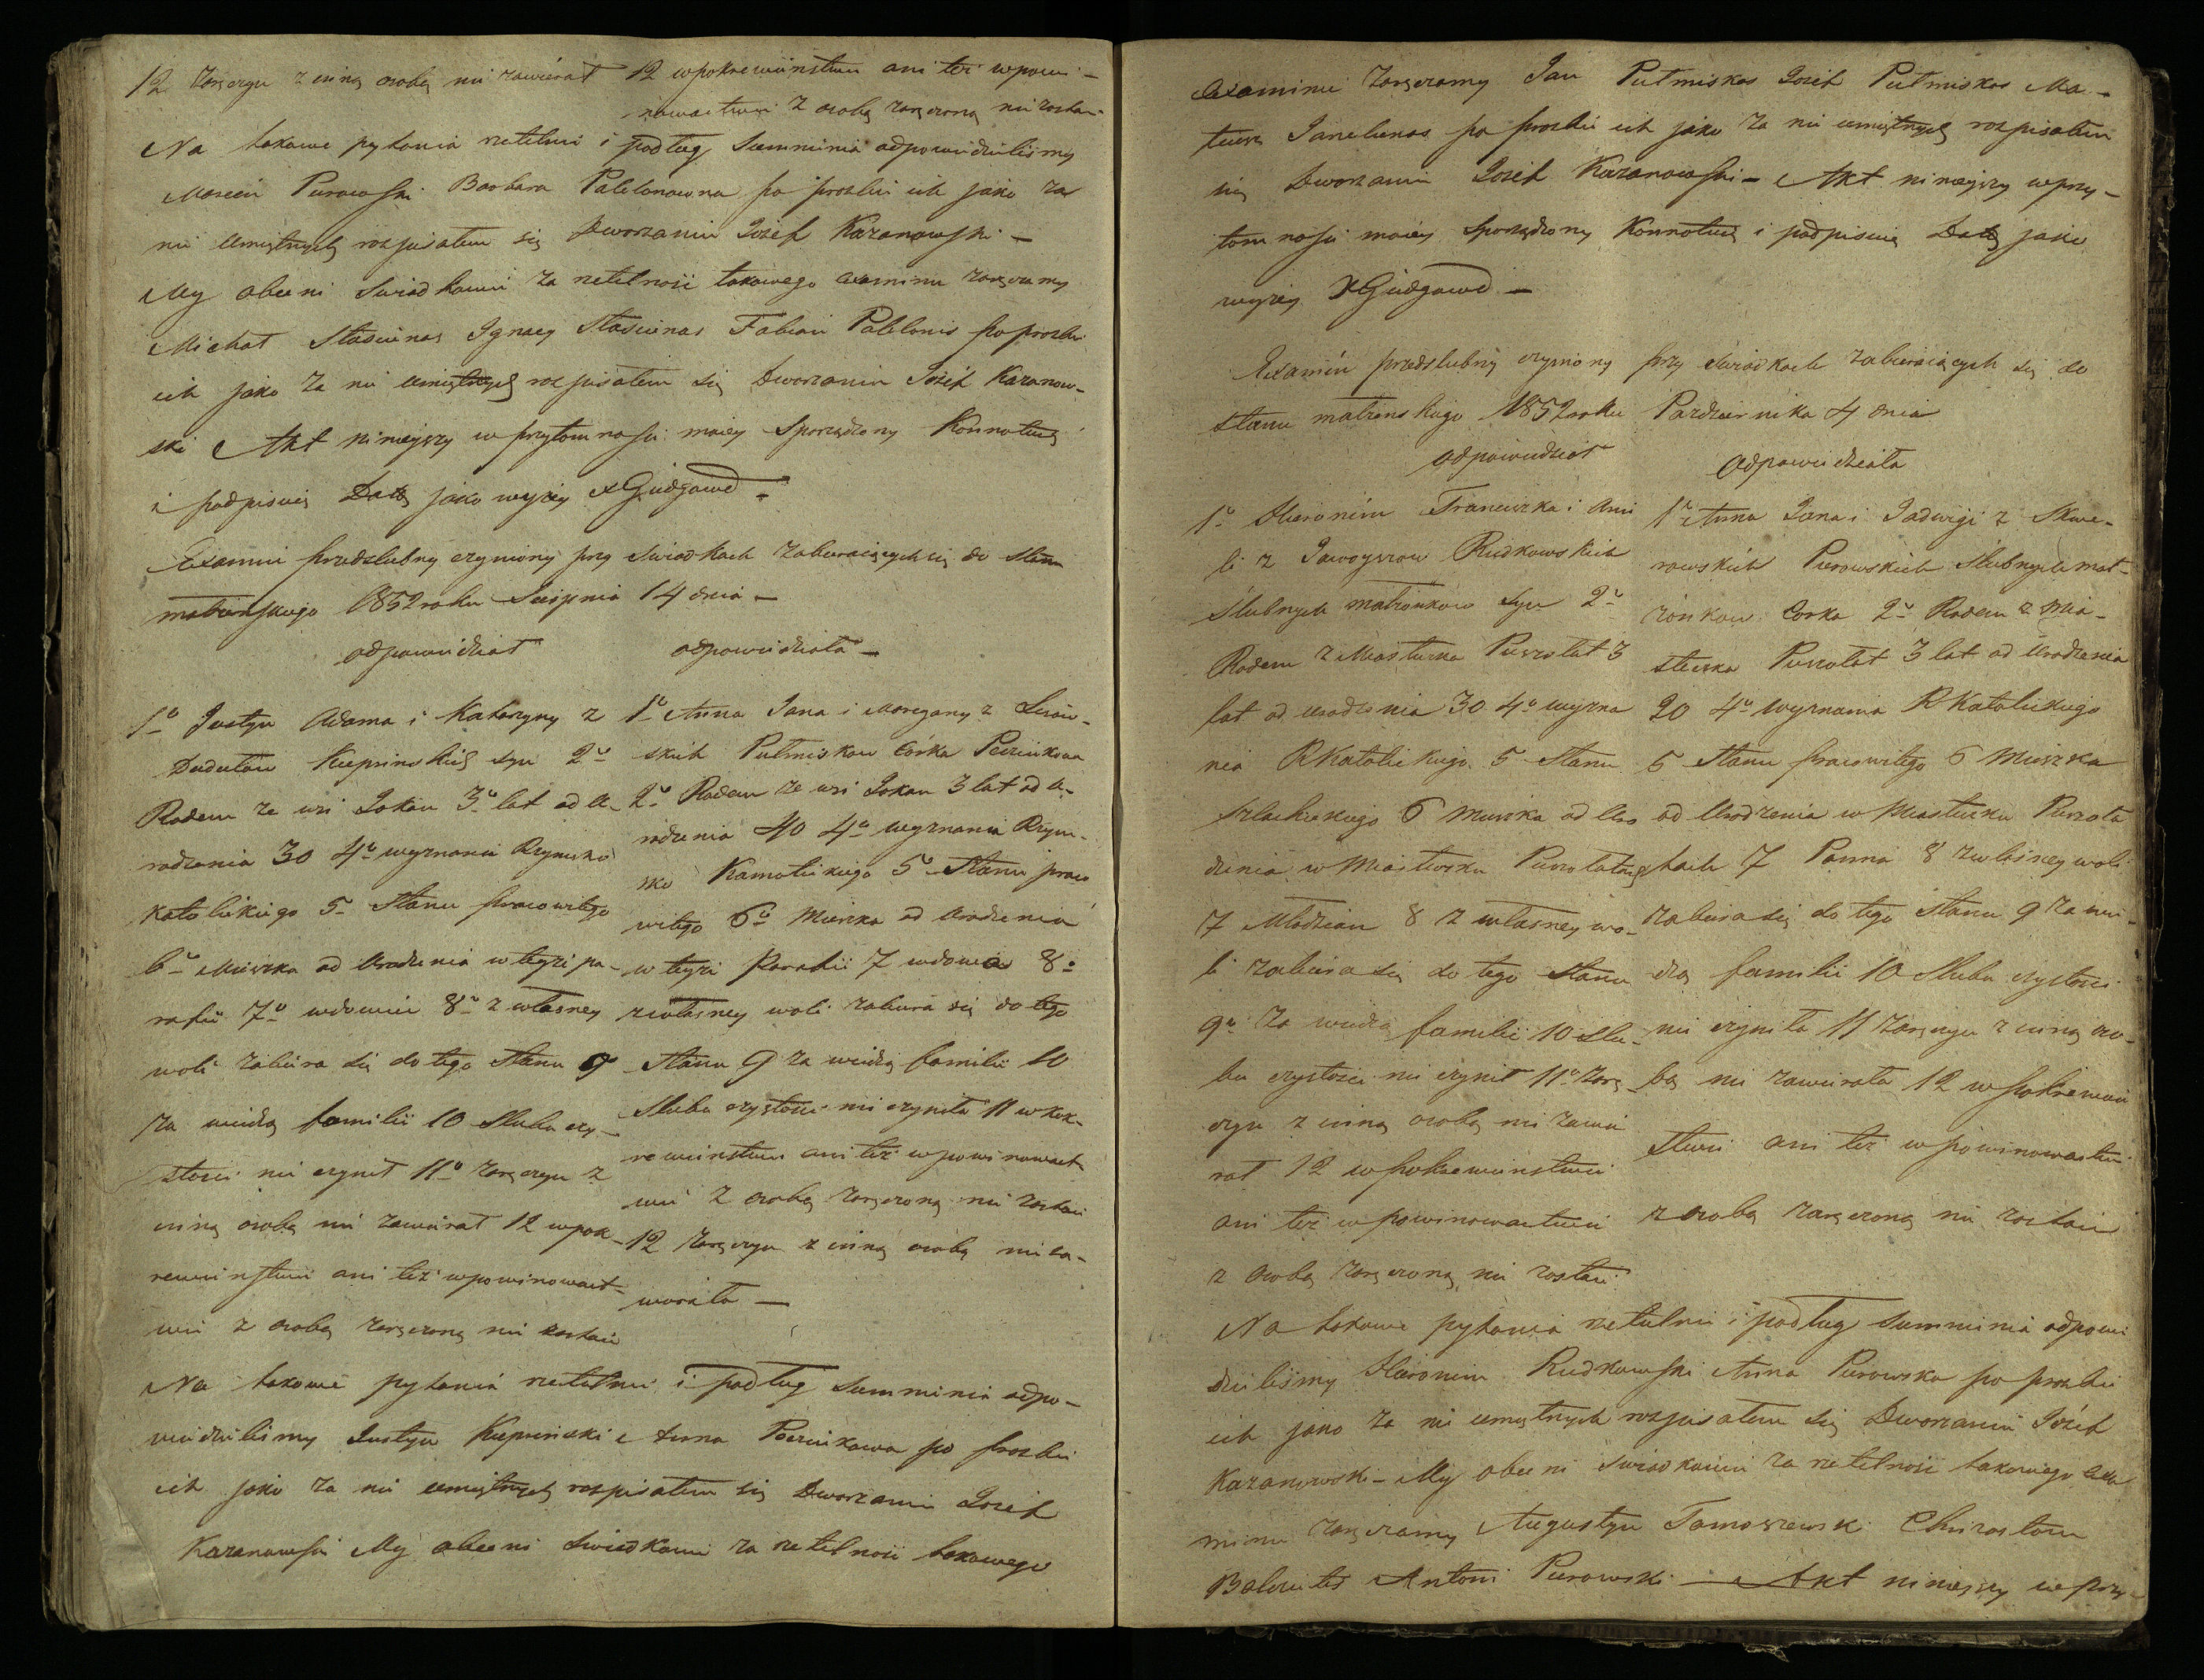 12 Zaręczyn z inną osobą nie zawierał
12 w pokrewinstwie ani też w powi-
nowactwie z osobą zaręczoną nie zostaie
Na takowe pytania rzetelnie i podług Summinia odpowiedzieliśmy
Marcin Purowski Barbara Pablonowna po prozbie ich jako za
nie umiętnych rozpisałem się Dworzanin Jozef Kazanowski —
My obecni Swiadkowie za rzetelność takowego examinu zaręczamy
Michał Stasiunas Ignacy Stasiunas Fabian Pablonis po prozbie
ich jako za nie umiętnych rozpisałem się Dworzanin Jozef Kazanow-
ski Akt ninieyszy w przytomnosci moiey Sporządzony Konnotuię
i podpisuię Datą jako wyżey X Giedgowd —
Examin przedslubny czyniony przy Swiadkach zabieraiących się do Stanu
małżenskiego 1852 roku Sierpnia 14 dnia —
odpowiedział
1o Justyn Adama i Katarzyny z
Dudutów Kuprinskich syn 2o
Rodem ze wsi Jokan 3o lat od u-
rodzenia 30 4o wyznania Rzymsko
Katolickiego 5 Stanu pracowitego
6o Mieszka od Urodzenia w teyże pa-
rafii 7o wdowiec 8o z własney
woli zabiera się do tego Stanu 9o
za wiedzą familii 10 Slubu czy-
stosci nie czynił 11o zaręczyn z
inną osobą nie zawierał 12 w pok-
rewinstwie ani też w powinowact-
wie z osobą zaręczoną nie zostaie
odpowiedziała —
1o Anna Jana i Maryany z
skich Putmiskow Córka
2o Rodem ze wsi Jokan 3 lat od u-
rodzenia 40 4o wyznania Rzym-
sko Kamolickiego 5o Stanu praco
witego 6o Mieszka od Urodzenia
w teyże Parafii 7 wdowa 8o
z własney woli zabiera się do tego
Stanu 9 za wiedzą familii 10
Slubu czystosci nie czyniła 11 w pok-
rewinstwie ani też w powinowact
wie z osobą zaręczoną nie zostaie
12 Zaręczyn z inną osobą nie za-
wierała —
Na takowe pytania rzetelnie i podług Summinia odpo-
wiedzieliśmy Justyn Kuprinski Anna po prozbie
ich jako za nie umiętnych rozpisałem się Dworzanin Jozef
Kazanowski My obecni Swiadkowie za rzetelność takowego
Examinu zaręczamy Jan Putmiskas Jozef Putmiskas Ma-
teusz po prozbie ich jako za nie umiętnych rozpisałem
się Dworzanin Jozef Kazanowski — Akt ninieyszy w przy-
tomnosci moiey Sporządzony Konnotuię i podpisuię Datą jako
wyżey X Giedgowd —
Examin przedslubny czyniony przy Swiadkach zabieraiących się do
Stanu małżenskiego 1852 roku Pazdziernika 4 dnia
odpowiedział
1o Hieronim Franciszka i Ani
li z Jawoyszow Rudkowskich
Slubnych małżonkow Syn 2o
Rodem z Miasteczka Puszolat 3
lat od urodzenia 30 4o wyzna
nia R Katolickiego 5 Stanu
Szlacheckiego 6 Mieszka od Uro
dzenia w Miasteczku Puszolatach
7 Młodzian 8 z własney wo-
li zabiera się do tego Stanu
9o za wiedzą familii 10 Slu-
bu czystosci nie czynił 11o zarę
czyn z inną osobą nie zawie
rał 12 w pokrewinstwie
ani też w powinowactwie
z osobą zaręczoną nie zostaie
odpowiedziała
1o Anna Jana i Jadwigi z Skwe-
rowskich Purowskich Slubnych mał-
żonkow Corka 2o Rodem z Mia-
steczka Puszolat 3 lat od Urodzenia
20 4o Wyznania R Katolickiego
5 Stanu pracowitego 6 Mieszka
od Urodzenia w Miasteczku Puszola
tach 7 Panna 8 z własney woli
zabiera się do tego Stanu 9 za wie-
dzą familii 10 Slubu czystosci
nie czyniła 11 Zaręczyn z inną oso-
bą nie zawierała 12 w pokrewin
stwie ani też w powinowactwie
z osobą zaręczoną nie zostaie
Na takowe pytania rzetelnie i podług Summinia odpowie
dzieliśmy Hieronim Rudkowski Anna Purowska po prozbie
ich jako za nie umiętnych rozpisałem się Dworzanin Józef
Kazanowski — My obecni Swiadkowie za rzetelność takowego Exa
minu zaręczamy Augustyn Tamoszewski Chrizostom
Antoni Purowski — Akt ninieyszy w przy-